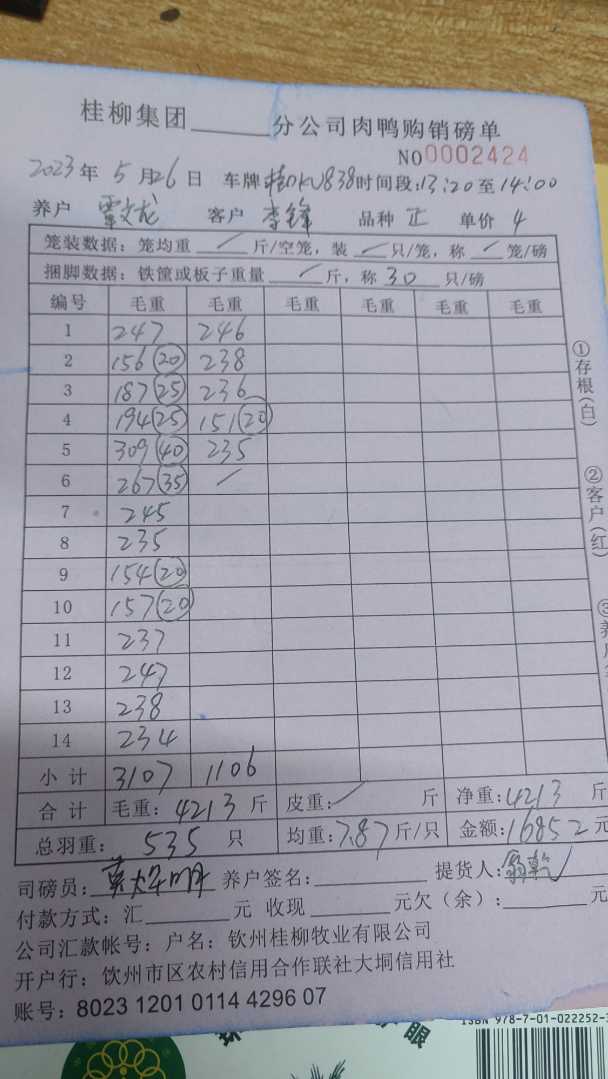 桂柳集团______分公司肉鸭购销磅单
NO0002424
2023年 5月26日 车牌 838 时间段:13:20至14:00
养户 覃文龙 客户 李锋 品种 正 单价 4
笼装数据：笼均重 / 斤/空笼，装 / 只/笼，称 / 笼/磅
捆脚数据：铁筐或板子重量 / 斤，称 30 只/磅
编号 毛重 毛重 毛重 毛重 毛重 毛重
1 247 246
2 156(20) 238
3 187(25) 236
4 194(25) 151(20)
5 309(40) 235
6 267(35) /
7 245
8 235
9 154(20)
10 157(20)
11 237
12 247
13 238
14 234
小计 3107 1106
合计 毛重：4213斤 皮重：/ 斤 净重：4213斤
总羽重： 535 只 均重：7.87斤/只 金额：16852元
司磅员： 养户签名：______ 提货人：
付款方式：汇______元 收现______元欠（余）：______元
公司汇款帐号：户名：钦州桂柳牧业有限公司
开户行：钦州市区农村信用合作联社大垌信用社
账号：8023 1201 0114 4296 07
①存根(白)
②客户(红)
③养
ISBN 978-7-01-022252-
眼